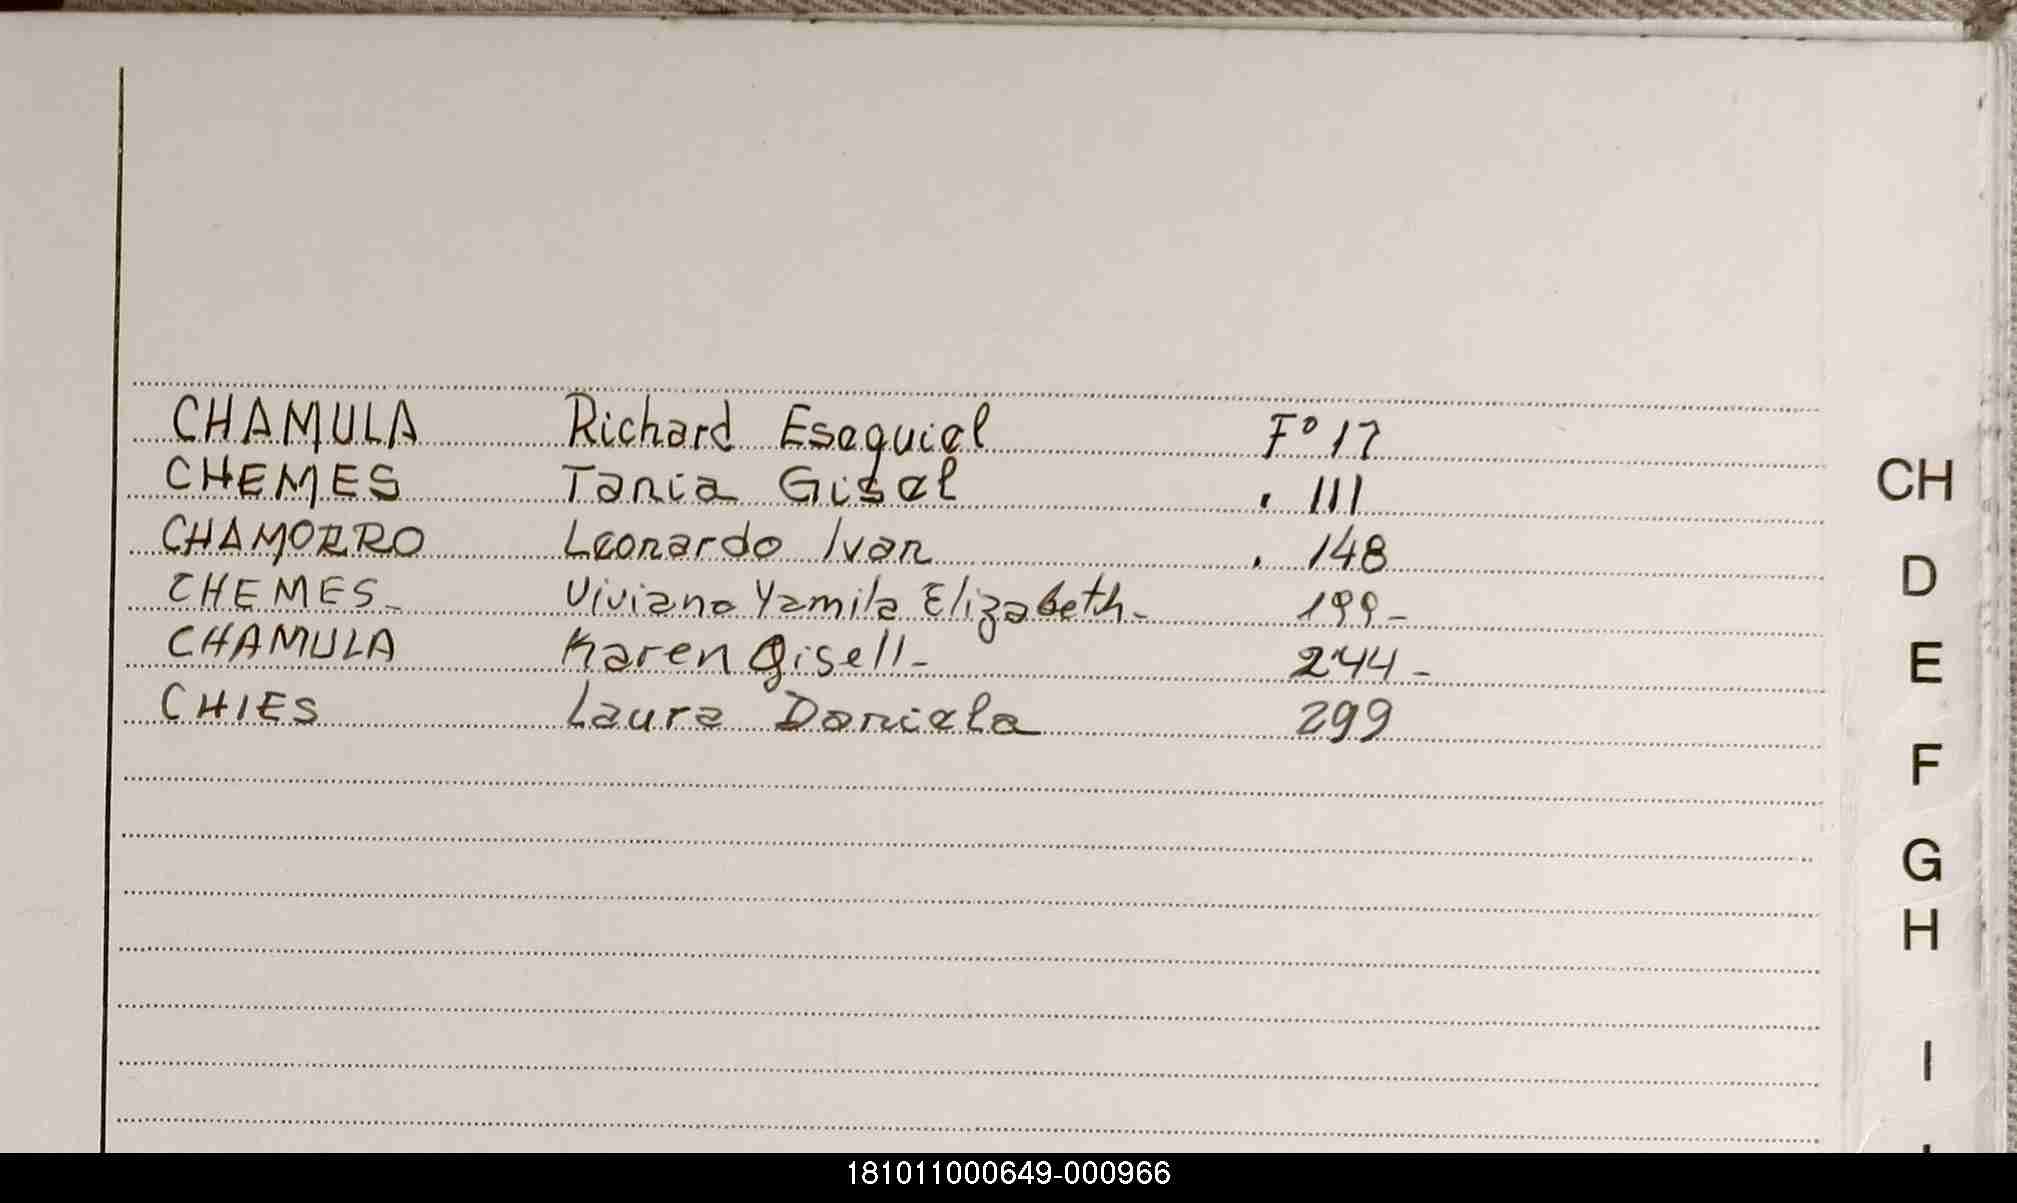 CHAMULA Richard Esequiel Fº 17
CHEMES Tania Gisel . 111
CHAMORRO Leonardo Ivan . 148
CHEMES - Viviana Yamila Elizabeth - 199 -
CHAMULA Karen Gisell - 244 -
CHIES Laura Daniela 299
CH
D
E
F
G
H
I
181011000649-000966